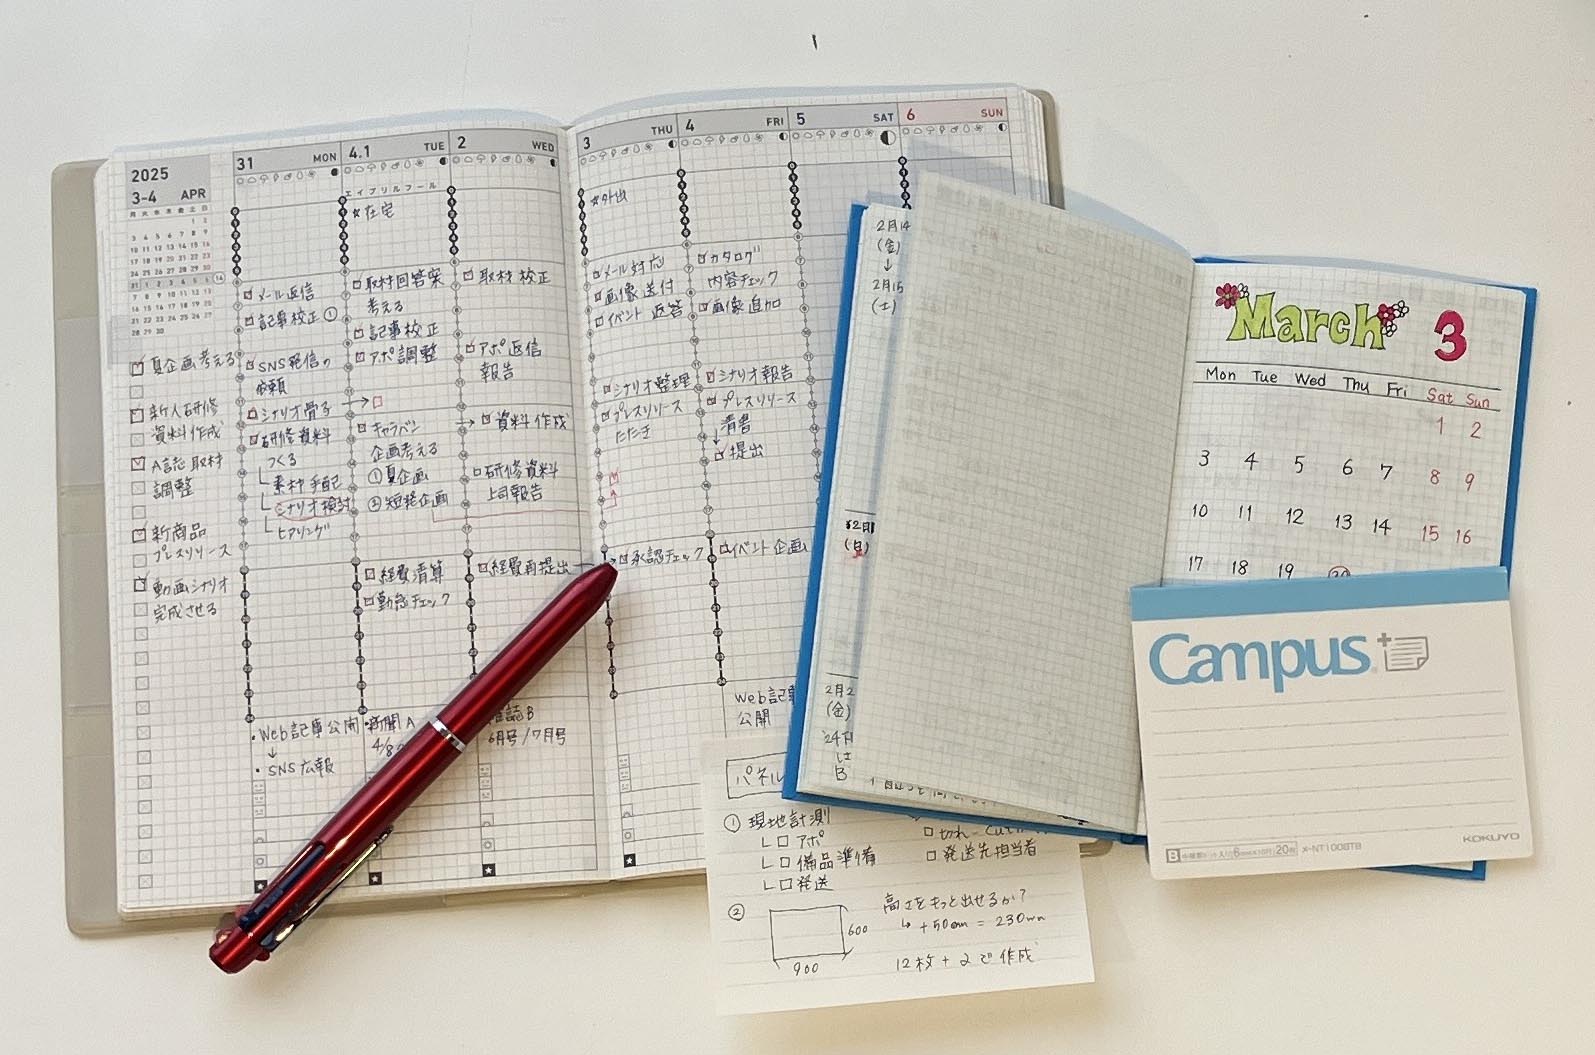 2025
3-4 APR
31 MON
4.1 TUE
2 WED
3 THU
4 FRI
5 SAT
6 SUN
エイプリルフール
夏企画考える
新人研修
資料作成
A誌取材
調整
新商品
プレスリリース
動画シナリオ
完成させる
メール返信
記事校正①
SNS発信の
依頼
シナリオ骨子
研修資料
つくる
素材手配
シナリオ検討
ヒアリング
・Web記事公開
↓
・SNS広報
☆在宅
取材回答案
考える
記事校正
アポ調整
キャラバン
企画考える
①夏企画
②短発企画
経費清算
勤怠チェック
・新聞A
取材校正
アポ返信
報告
資料作成
研修資料
上司報告
経費再提出
雑誌B
6月号/7月号
☆外出
メール対応
画像送付
イベント返答
シナリオ整理
プレスリリース
たたき
承認チェック
カタログ
内容チェック
画像追加
シナリオ報告
プレスリリース
清書
↓
提出
イベント企画
Web記事
公開
2月14
(金)
↓
2月15
(土)
(金)
B
March 3
Mon Tue Wed Thu Fri Sat Sun
1 2
3 4 5 6 7 8 9
10 11 12 13 14 15 16
17 18 19 20
Campus
KOKUYO
パネル
①現地計測
└□アポ
└□備品準備
└□発送
□発送先担当者
②
600
900
高さをもっと出せるか?
12枚+2で作成